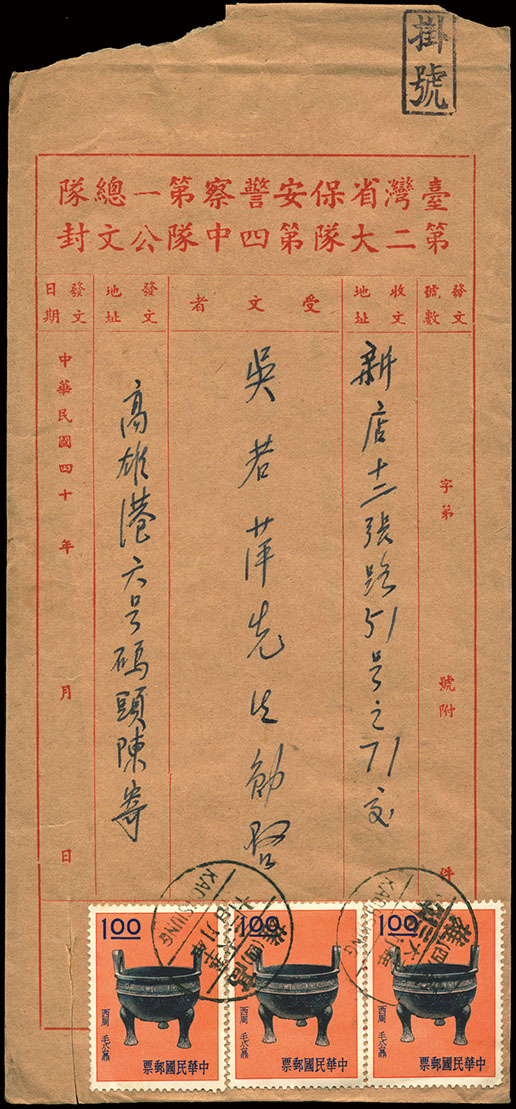 掛號
臺灣省保安警察第一總隊
第二大隊第四中隊公文封
發文號數
字第 號附 件
收文地址
新店十二張路51号之71交
受文者
吳若萍先生勛啓
發文地址
高雄港六号碼頭陳寄
發文日期
中華民國四十 年 月 日
KAOHSIUNG
KAOHSIUNG
1.00
西周 毛公鼎
中華民國郵票
1.00
西周 毛公鼎
中華民國郵票
1.00
西周 毛公鼎
中華民國郵票